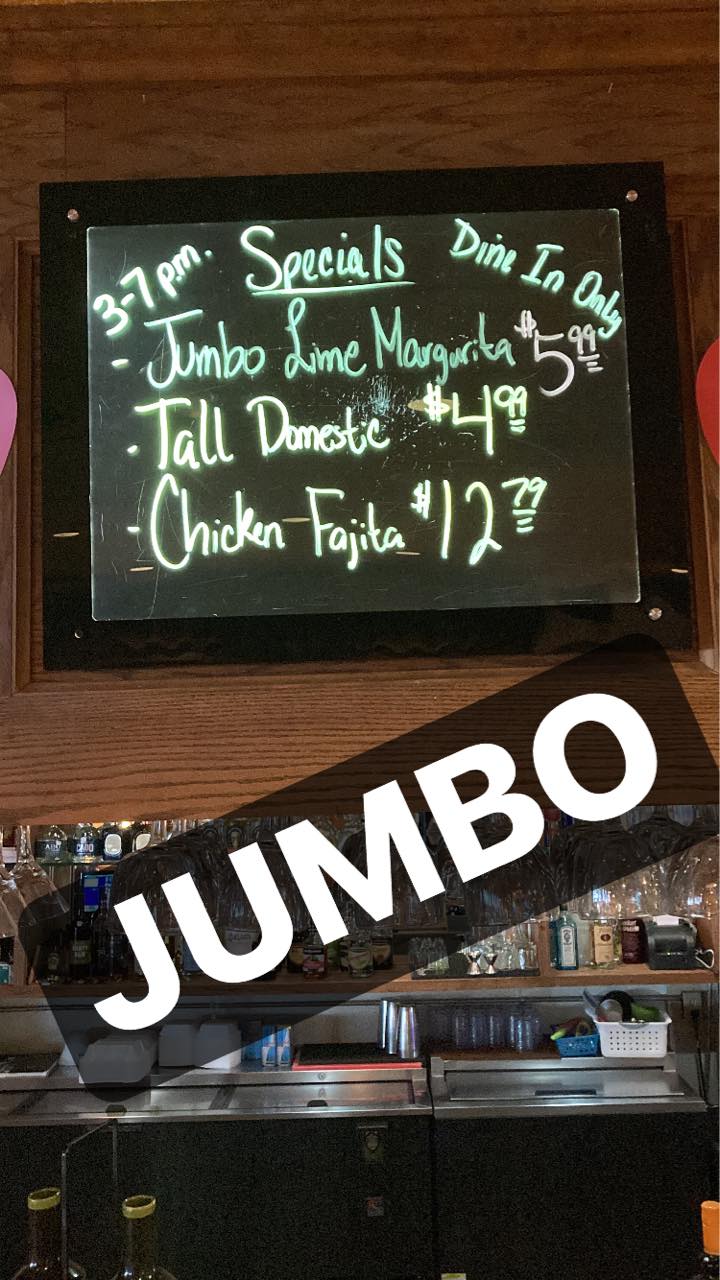 3-7 p.m. Specials Dine In Only
- Jumbo Lime Margarita $5.99
- Tall Domestic $4.99
- Chicken Fajita $12.79
JUMBO